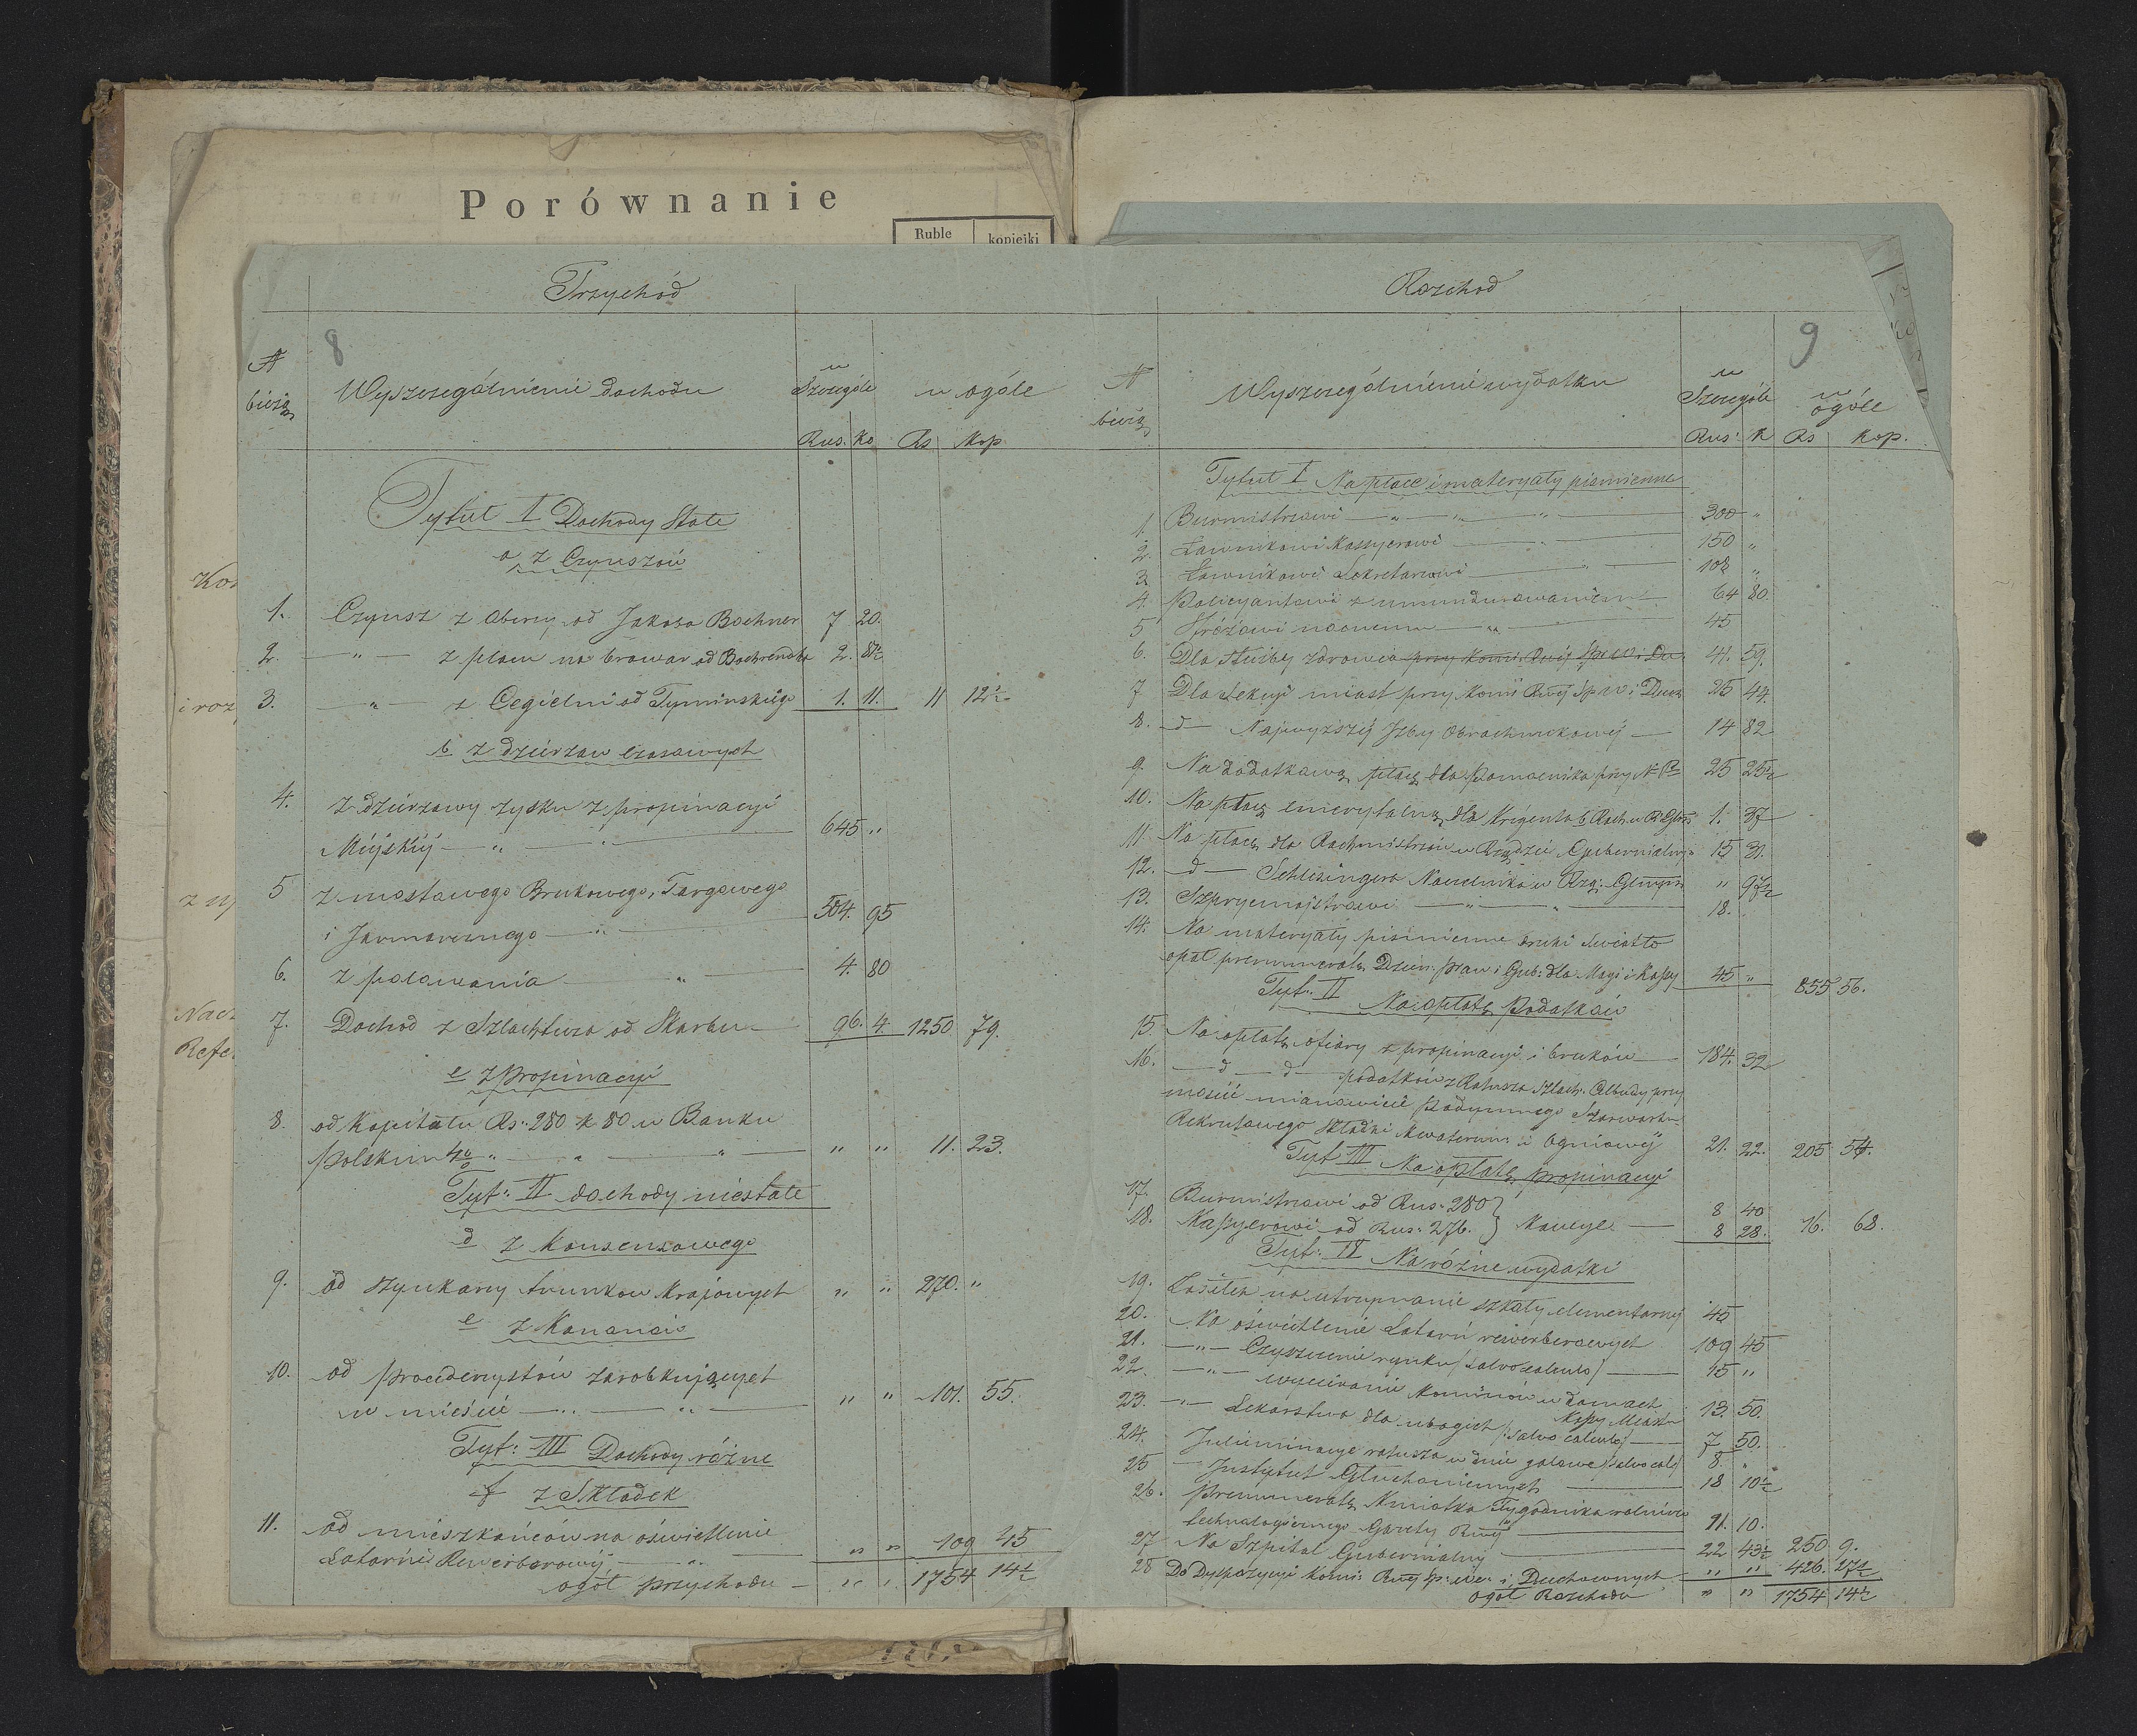 Porównanie
Ruble kopiejki
Przychód
8
N bieżą
Wyszczegolnienie dochodu
w Szczególe
w ogóle
Rus. Ko Rs Kop
Tytuł I Dochody Stałe
a z Czynszów
1. Czynsz z Oberzy od Jakóba Bochner 7 20.
2. — " — z placu na browar od 2.
3. — " — z Cegielni od Tyminskiego 1. 11. 11 12½
b z dzierżaw czasowych
4. Z dzierżawy zysku z propinacyi
Miejskiej — " — " 645 "
5 z mostowego Brukowego, Targowego
i Jarmarcznego — " — 504. 95
6. z polowania — " — 4. 80
7. Dochod z Szlachtuza od Skarbu — 96. 4. 1250 79.
c z Propinacyi
8. od Kapitału Rs: 280 k 80 w Banku
Polskim 4% " — " — " — " " 11. 23.
Tyt: II dochody niestałe
d z Konsensowego
9. od szynkarzy trunkow krajowych " " 270. "
e z Kanonów
10. od Procederzystów zarobkujących
w mieście — " — " — " " 101. 55.
Tyt: III Dochody różne
f z Składek
11. od mieszkańców na oświetlenie
Latarni Rewerberowej — " — " " 109 45
ogół przychodu — " " 1754 14½
Kor
i roz
z wy
Nacz
Refe
Rozchod
9
N bieżą
Wyszczegolnienie wydatku
w Szczególe
w ogóle
Rus: K Rs Kop.
Tytuł I Na płace i materyały piśmienne
1. Burmistrzowi — " — " — " — 300 "
2. Ławnikowi Kassyerowi — " — 150 "
3 Ławnikowi Sekretarzowi — " — 108 "
4. Policyantowi z umundurowaniem — 64 80.
5 Stróżowi nocnemu — " — 45
6. Dla służby zdrowia przy Komi: Rząd: Spr: W: i Du: 41. 59.
7 Dla Sekcyi miast przy Komi: Rzą: Sp: W: i Duch 25 44.
8. — d — Najwyższej Izby Obrachunkowej — 14 82
9. Na dodatkową płacę dla Pomocnika przy N. P. 25 25½
10. Na płacę emerytalną dla 1. 37
11 Na płacę dla Rachmistrzów w Rządzie Gubernialnym 15 31.
12. — d — Schlesingera Naczelnika w Rzą: Gubern " 97½
13. Szprycmajstrowi — " — " — 18.
14. Na materyały pismienne druki swiatło
opał prenumeratę Dzien: praw i Gub: dla Mag: i Kassy 45 " 855 56.
Tyt: II Na opłatę Podatków
15 Na opłatę ofiary z propinacyi i bruków — 184. 32
16. — d — d — podatków z Ratusza Szlach:
mosić mianowicie Podymnego Szarwarku
Rekrutowego składki kwaterun: i Ogniowej 21. 22. 205 54.
Tyt III Na opłatę propinacyi
17. Burmistrzowi od Rus: 280 } 8 40
18. Kassyerowi od Rus: 276. } Kaucyi — 8 28. 16. 68.
Tyt: IV Na różne wydatki
19. Zasiłek na utrzymanie szkoły elementarnej 45
20. Na oświetlenie Latarń rewerberowych 109 45
21. — " — Czyszczenie rynku /salvo calculo/ — 15 "
22. — " — wycieranie Kominów w domach
Kassy Miasta 13. 50.
23. — " — Lekarstwa dla ubogich /salvo calculo/ — 7 50.
24. Iuliminacye ratusza w dnie galowe /salvo cal:/ 8. "
25 Instytut Głuchoniemych — 18 10½
26. Prenumeratę Kmiotka Tygodnika rolniczo
technologicznego Gazety Rząd: — 11. 10.
27 Na Szpital Gubernialny — 22 43½ 250 9.
28 Do Dyspozycyi Komi: Rząd Sp: We: i Duchownych " " 426. 27½
ogół Rozchodu " " 1754 14½